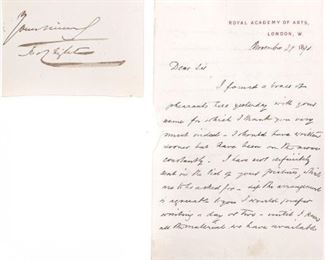 Yours sincerely
ROYAL ACADEMY OF ARTS,
LONDON, W.
November 29 1890
Dear Sir
I found a brace of
pheasants here yesterday with your
name for which I thank you very
much indeed - I should have written
sooner but have been on the move
constantly. I have not definitely
sent in the list of your pictures, which
are to be asked for - if the arrangement
is agreeable to you I would prefer
waiting a day or two - until I have
all the material we have available